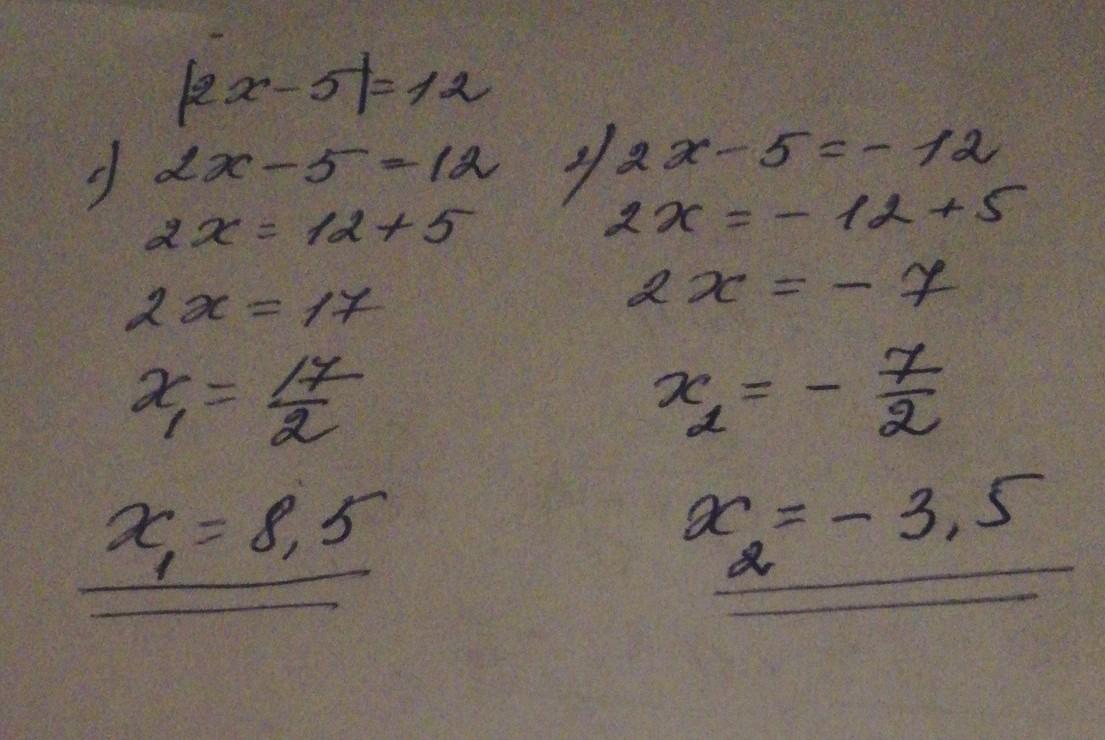 |2x-5|=12
1) 2x-5=12
2x=12+5
2x=17
x₁=17/2
x₁=8,5
2) 2x-5=-12
2x=-12+5
2x=-7
x₂=-7/2
x₂=-3,5